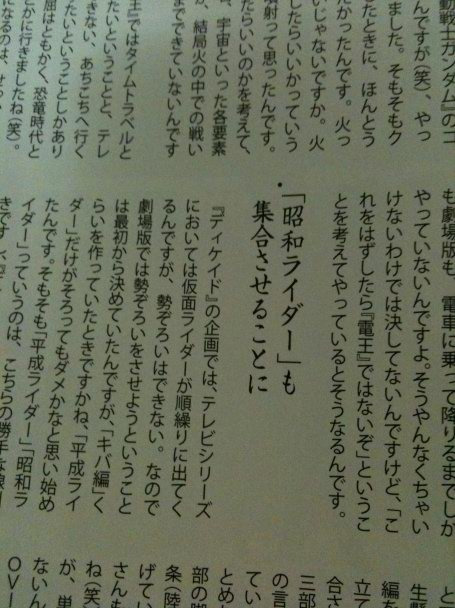 動戦士ガンダム』のコ
んですが（笑）、やっ
ました。そもそもク
したときに、ほんとう
たかったんです。火っ
いじゃないですか。火
したらいいかっていう
噴射って思ったんです。
たらいいのかを考えて、
、宇宙といった各要素
が、結局火の中での戦い
までできていないんです
王』ではタイムトラベルと
たいということと、テレ
きない、あちこちへ行く
たいということしかあり
屈はともかく、恐竜時代と
とかに行きましたね（笑）。
になるのは、
も劇場版も、電車に乗って降りるまでしか
やっていないんですよ。そうやんなくちゃい
けないわけでは決してないんですけど、「こ
れをはずしたら『電王』ではないぞ」というこ
とを考えてやっているとそうなるんです。
「昭和ライダー」も
集合させることに
『ディケイド』の企画では、テレビシリーズ
においては仮面ライダーが順繰りに出てく
るんですが、勢ぞろいはできない。なので
劇場版では勢ぞろいをさせようということ
は最初から決めていたんですが、「キバ編」く
らいを作っていたときですかね、「平成ライ
ダー」だけがそろってもダメかなと思い始め
たんです。そもそも「平成ライダー」「昭和ラ
イダー」っていうのは、こちらの勝手な線
と
編を
立て
合さ
三部
の言
てい
とめ
部の脚
条・陸
さんも
げてい
ね（笑
が、単
ない